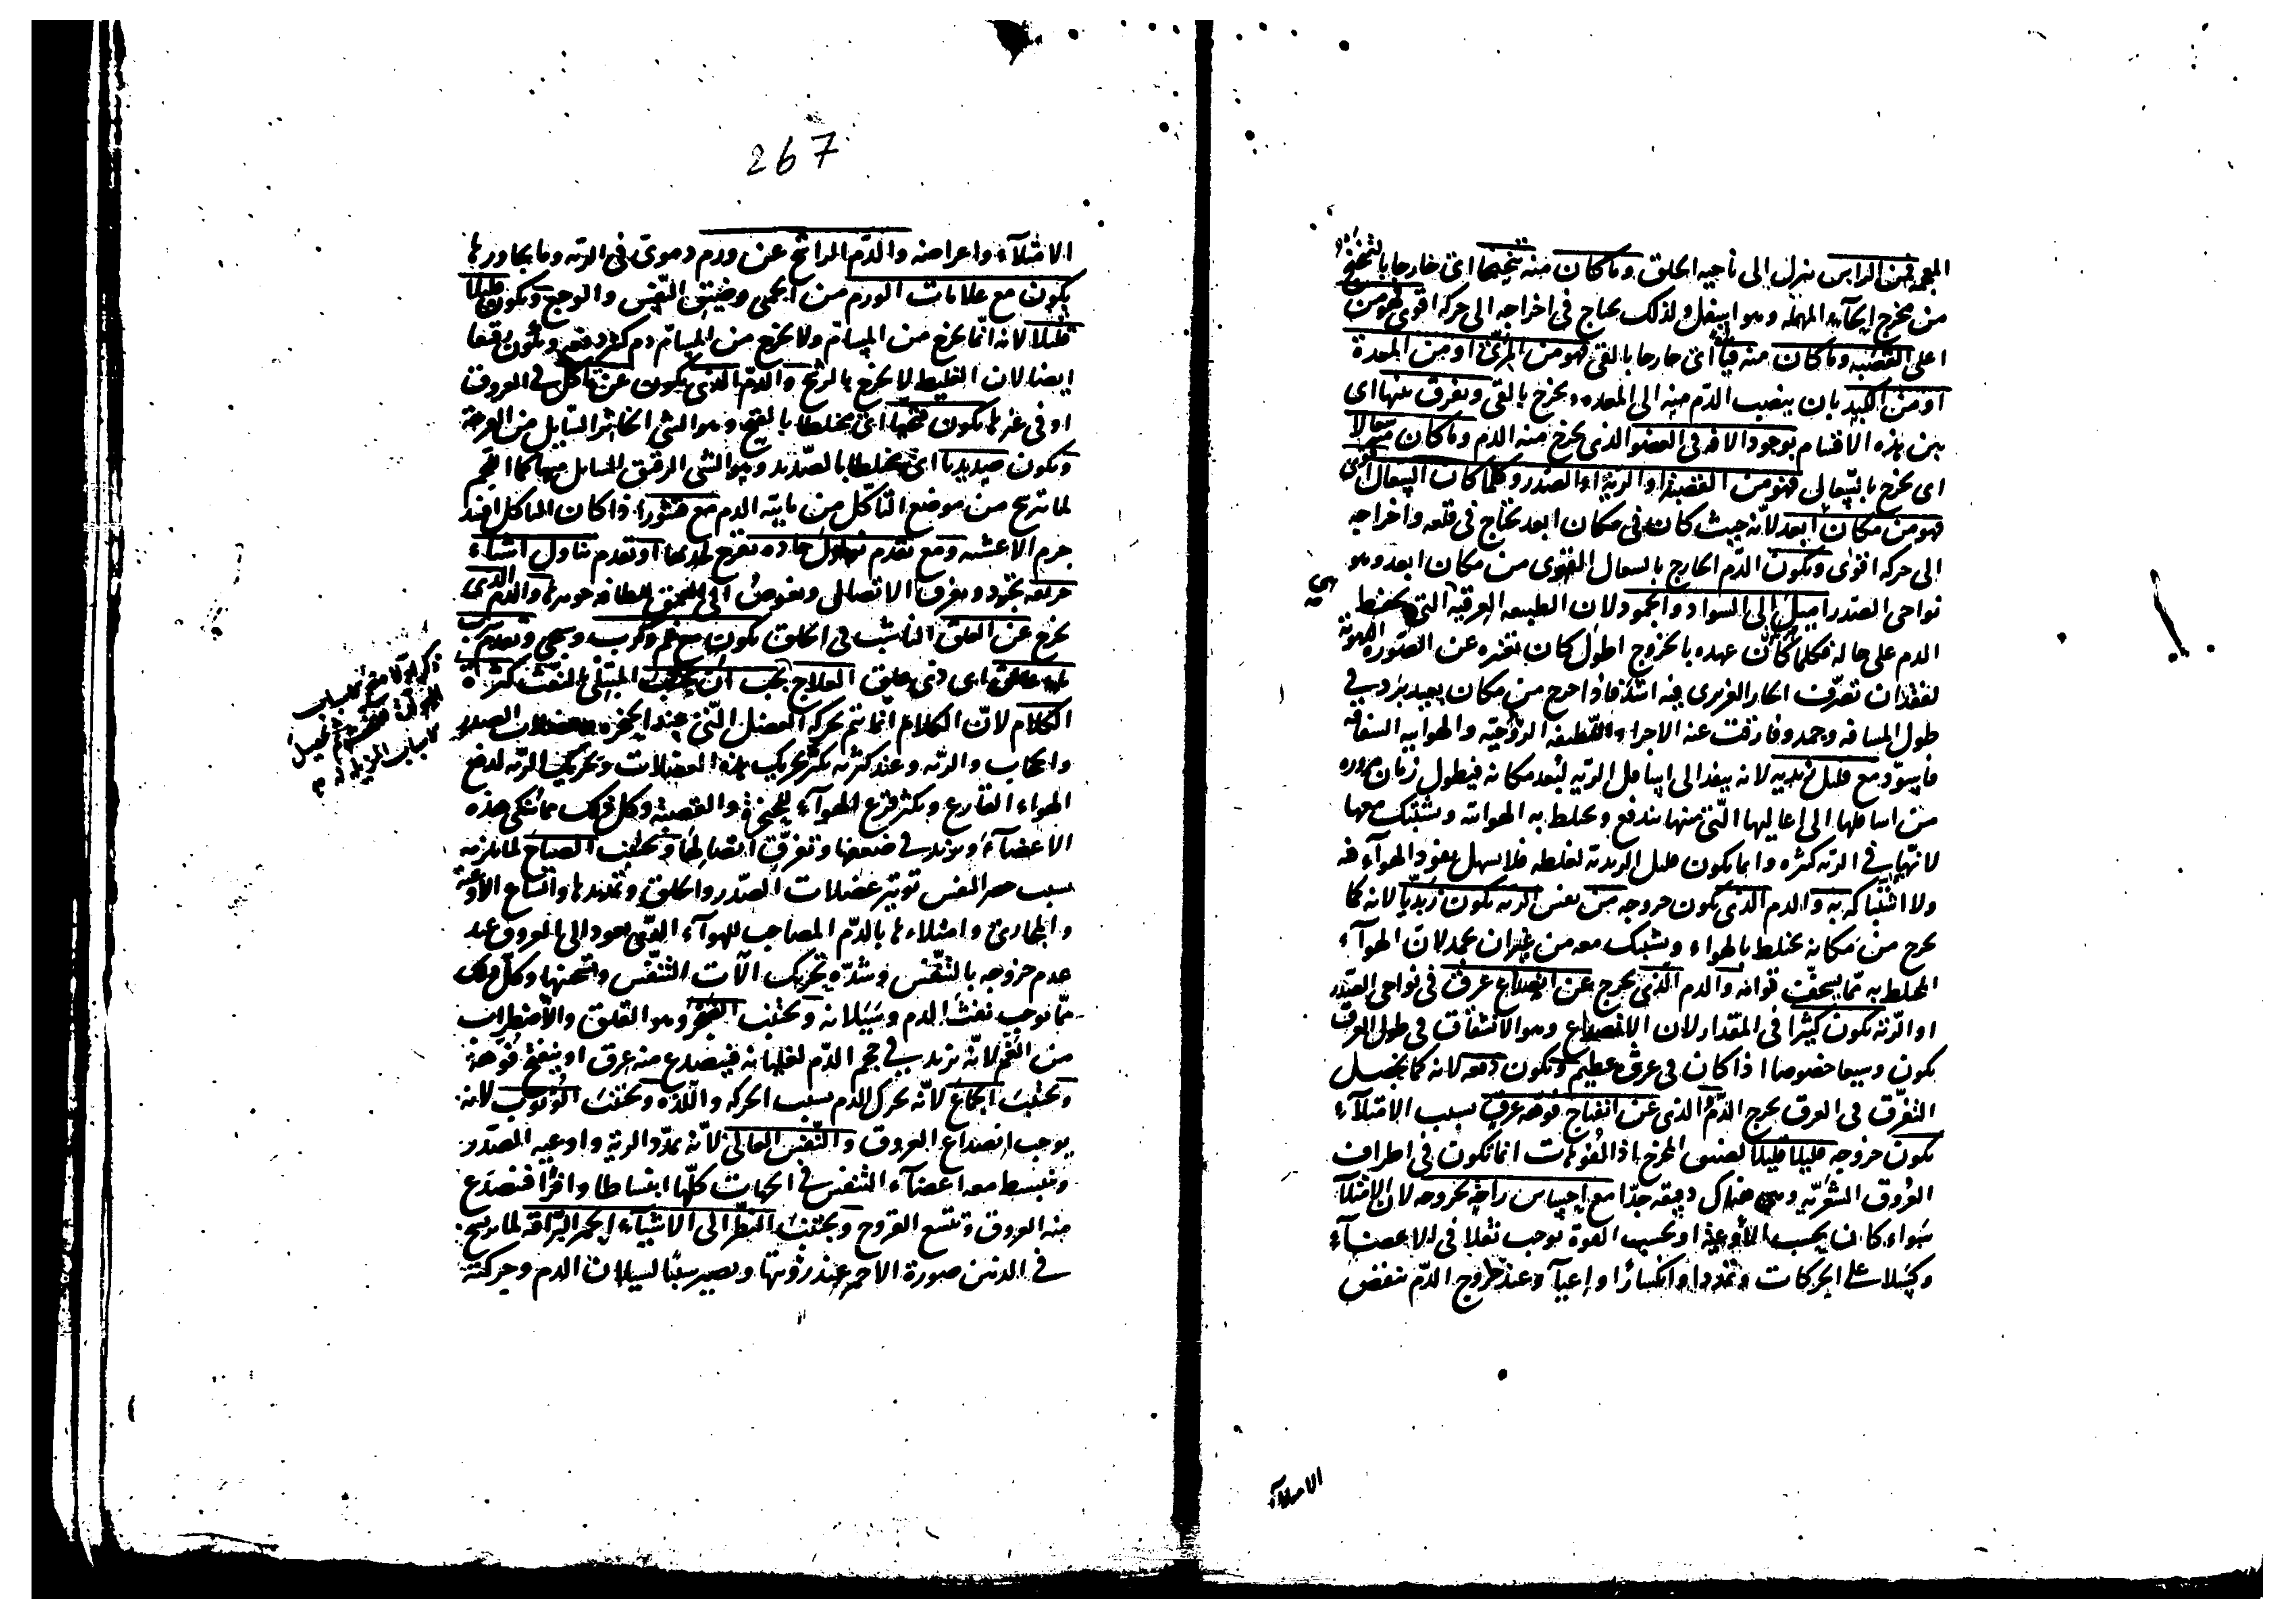 المعجمة فمن الراس ينزل الى ناحية الحلق وما كان منه تنخما اى خارجا بالتنخم
من مخرج الحاء المهملة وهو اسفل ولذلك يحتاج فى اخراجه الى حركة اقوى فهو من
اعلى القصبة وما كان منه قيأ اى خارجا بالقى فهو من المرئ او من المعدة
او من الكبد بان ينصب الدم منه الى المعده ويخرج بالقى ويفرق بينها اى
بين هذه الاقسام بوجود الافه فى العضو الذى يخرج منه الدم وما كان منه سعالا
اى يخرج بالسعال فهو من القصبة او الرية او الصدر وكلما كان السعال اقوى
فهو من مكان ابعد لانه حيث كان فى مكان ابعد يحتاج فى قلعه واخراجه
الى حركه اقوى ويكون الدم الخارج بالسعال القوى من مكان ابعد وهو
نواحى الصدر اميل الى السواد والجمود لان الطبيعه العرقيه التى تحفظ
الدم على حاله فكلما كان عهده بالخروج اطول كان تغيره عن الصورة
لفقدان تصرف الحار الغريزى فيه اشد فاذا خرج من مكان بعيد برد فى
طول المسافه وجمد وفارقت عنه الاجزاء اللطيفه الروحيه والهوائيه
فاسود مع قليل زبديه لانه ينفذ الى اسافل الريه لبعد مكانه فيطول زمان مروره
من اسافلها الى اعاليها التى منها يندفع ويختلط به الهوائيه ويشتبك معها
لانها فى الريه كثيره وانما يكون قليل الزبدية لغلظه فلا يسهل نفوذ الهواء فيه
ولا اشتباكه به والدم الذى يكون خروجه من نفس الريه يكون زبديا لانه كما
يخرج من مكانه يختلط بالهواء ويشتبك معه من غير ان يجمد لان الهواء
المختلط به مما يسخف قوامه والدم الذى يخرج عن انصداع عرق فى نواحى الصدر
او الريه يكون كثيرا فى المقدار لان الانصداع وهو الانشقاق فى طول العرق
يكون وسيعا خصوصا اذا كان فى عرق عظيم ويكون دفعه لانه كما يحصل
التفرق فى العرق يخرج الدم والذى عن انفتاح فوهه عرق بسبب الامتلاء
يكون خروجه قليلا قليلا لضيق المخرج اذ الفوهات انما تكون فى اطراف
العروق الشعريه وهى هناك دقيقه جدا مع احساس راحة بخروجه لان الامتلاء
سواء كان بحسب الاوعية او بحسب القوة يوجب ثقلا فى الاعضاء
وكسلا على الحركات وتمددا وانكسارا واعياء وعند خروج الدم ينقض
الامتلاء
267
الامتلاء واعراضه والدم الراشح عن ورم دموى فى الريه وما يجاورها
يكون مع علامات الورم من الحمى وضيق النفس والوجع ويكون قليلا
قليلا لانه انما يخرج من المسام ولا يخرج من المسام دم كثير دفعه ويكون رقيقا
ايضا لان الغليظ لا يخرج بالرشح والدم الذى يكون عن تاكل فى العروق
او فى غيرها يكون قيحيا اى مختلطا بالقيح وهو الشى الخاثر السايل من القرحة
ويكون صديديا اى مختلطا بالصديد وهو الشى الرقيق السايل منها
لما ترشح من موضع التاكل من مايية الدم مع قشور اذا كان التاكل افسد
جرم الاغشيه ومع تقدم نوازل حاده تقرح او تقدم تناول اشياء
حريفه تجرد وتفرق الاتصال وتغوص الى العمق للطافه جوهرها والدم الذى
يخرج عن العلق الناشب فى الحلق يكون مع غم وكرب وسحج وتقدم شرب
ماء عالق اى ذى علق العلاج يجب ان يجتنب المبتلى بالنفث كثرة
الكلام لان الكلام انما يتم بحركة العضل التى عند الحنجره وعضلات الصدر
والحجاب والريه وعند كثرته يكثر تحريك هذه العضلات وتحريك الريه لدفع
الهواء القارع ويكثر قرع الهواء للحنجرة والقصبة وكل ذلك مما ينكى هذه
الاعضاء ويزيد فى ضعفها وتفرق اتصالها ويجتنب الصياح لما يلزمه
بسبب حصر النفس توتير عضلات الصدر والحلق وتمديدها واتساع الاوعية
والمجارى وامتلاءها بالدم المصاحب للهواء الذى يعود الى العروق عند
عدم خروجه بالتنفس وشده تحريك الآت التنفس وتسخينها وكل ذلك
مما يوجب نفث الدم وسيلانه ويجتنب الضجر وهو القلق والاضطراب
من الغم لانه يزيد فى حجم الدم لغليانه فينصدع منه عرق او ينفتح فوهة
ويجتنب الجماع لانه يحرك الدم بسبب الحركه واللذه ويجتنب الوثوب لانه
يوجب انصداع العروق والتنفس العالى لانه يمدد الرية واوعيه الصدر
وينبسط معه اعضاء التنفس فى الجهات كلها انبساطا وافرا فينصدع
منه العروق وتتسع القروح ويجتنب النظر الى الاشياء الحمر البراقه لما يرسخ
فى الذهن صورة الاحمر عند رؤيتها ويصير سببا لسيلان الدم وحركته